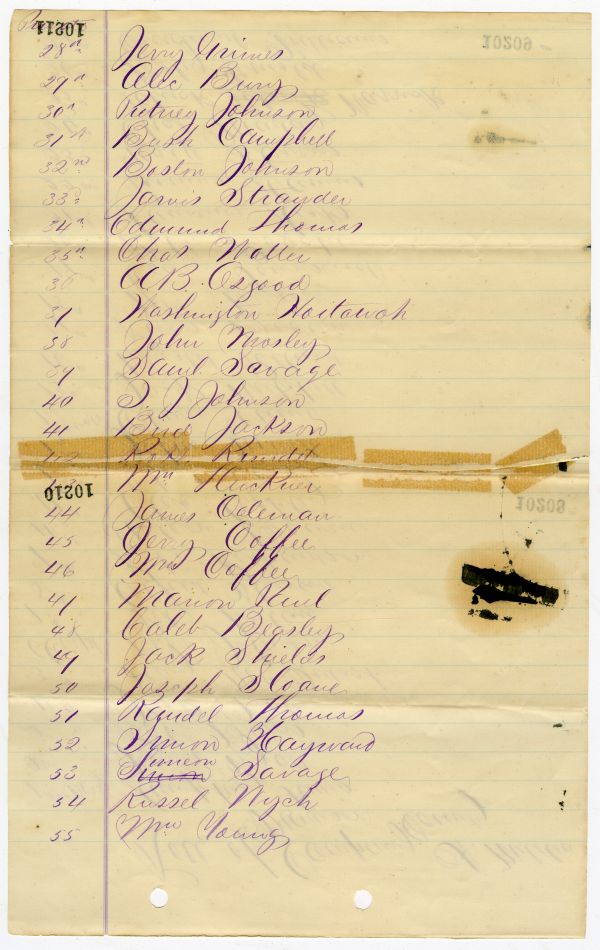 10211
10209
28th Jerry Grimes
29th Alec Bury
30th Putney Johnson
31st Bush Campbell
32nd Boston Johnson
33rd Jarvis Strayder
34th Edmund Thomas
35th Chas Waller
36 A.B. Osgood
37 Washington
38 John Mosley
39 Saml Savage
40 S J Johnson
41 Bud Jackson
42
43 Wm
10210
10209
44 James Coleman
45 Jerry Coffee
46 Wm Coffee
47 Marion
48 Caleb Beasley
49 Jack Shields
50 Joseph Sloane
51 Randel Thomas
52 Simon Hayward
53 Simeon Savage
54 Russel Wych
55 Wm Young